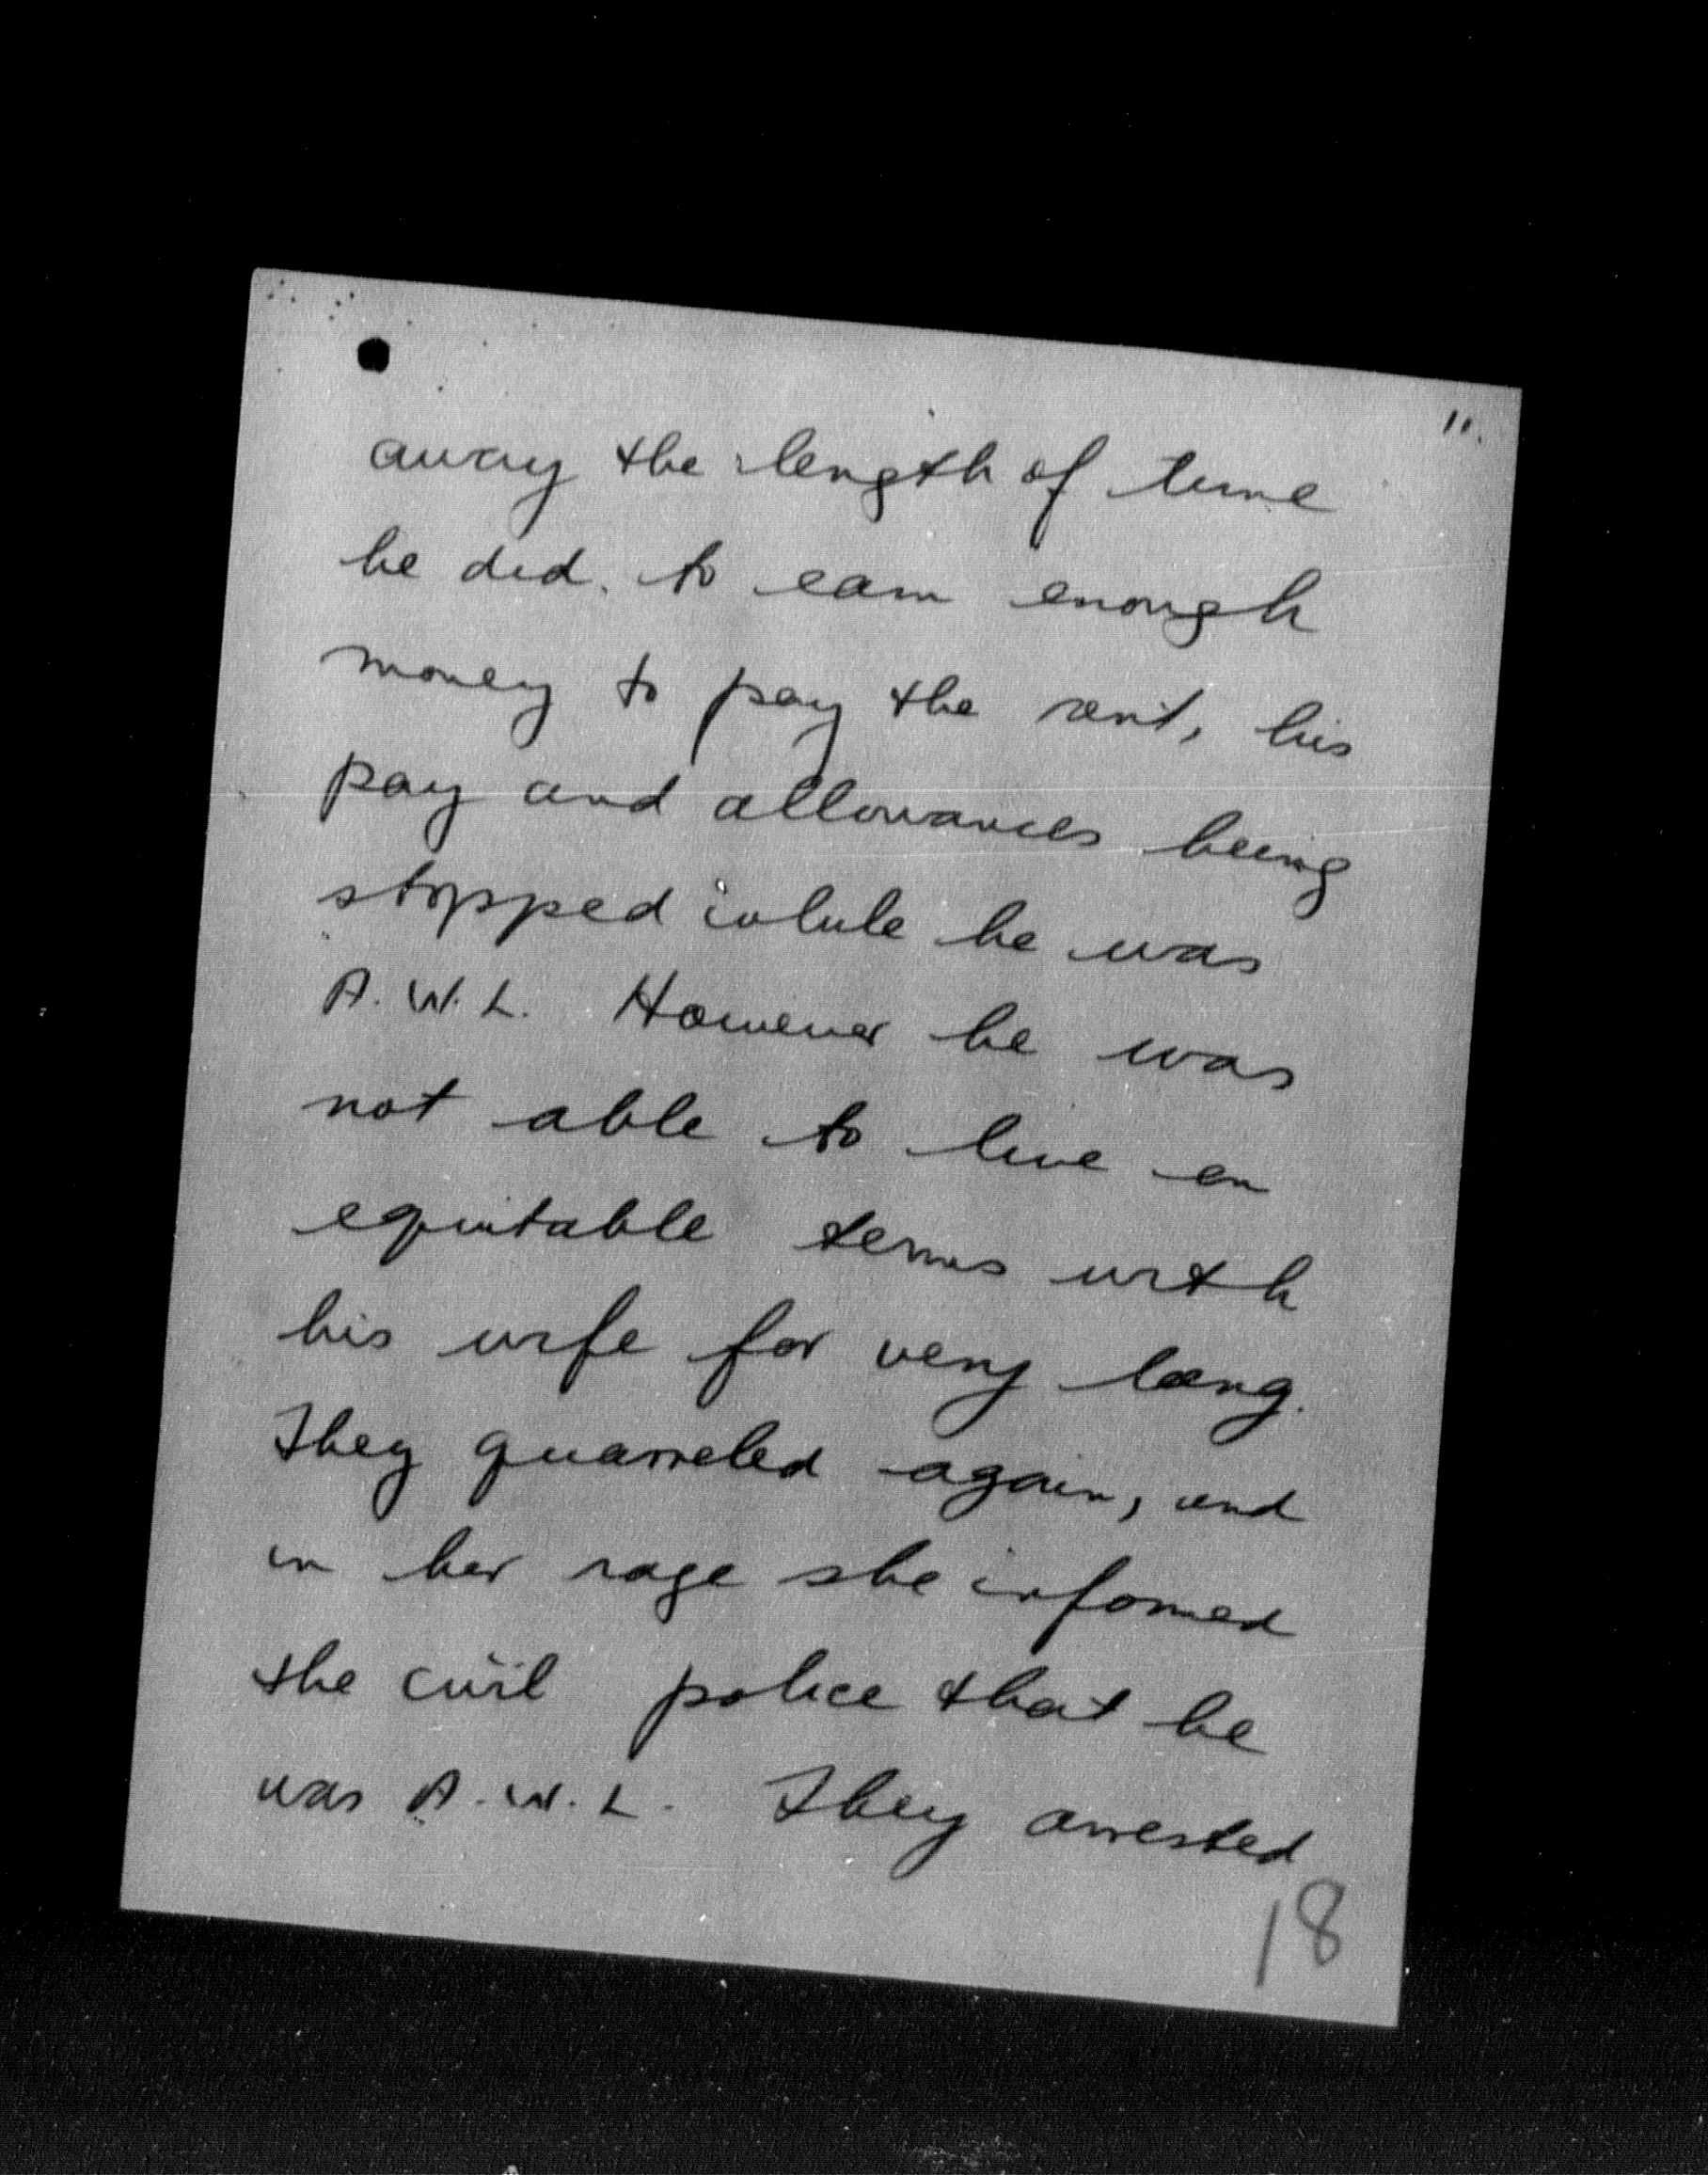 11.
away the length of time
he did. to earn enough
money to pay the rent, his
pay and allowances being
stopped while he was
A.W.L. However he was
not able to live on
equitable terms with
his wife for very long.
They quarreled again, and
in her rage she informed
the civil police that he
was A.W.L. They arrested
18